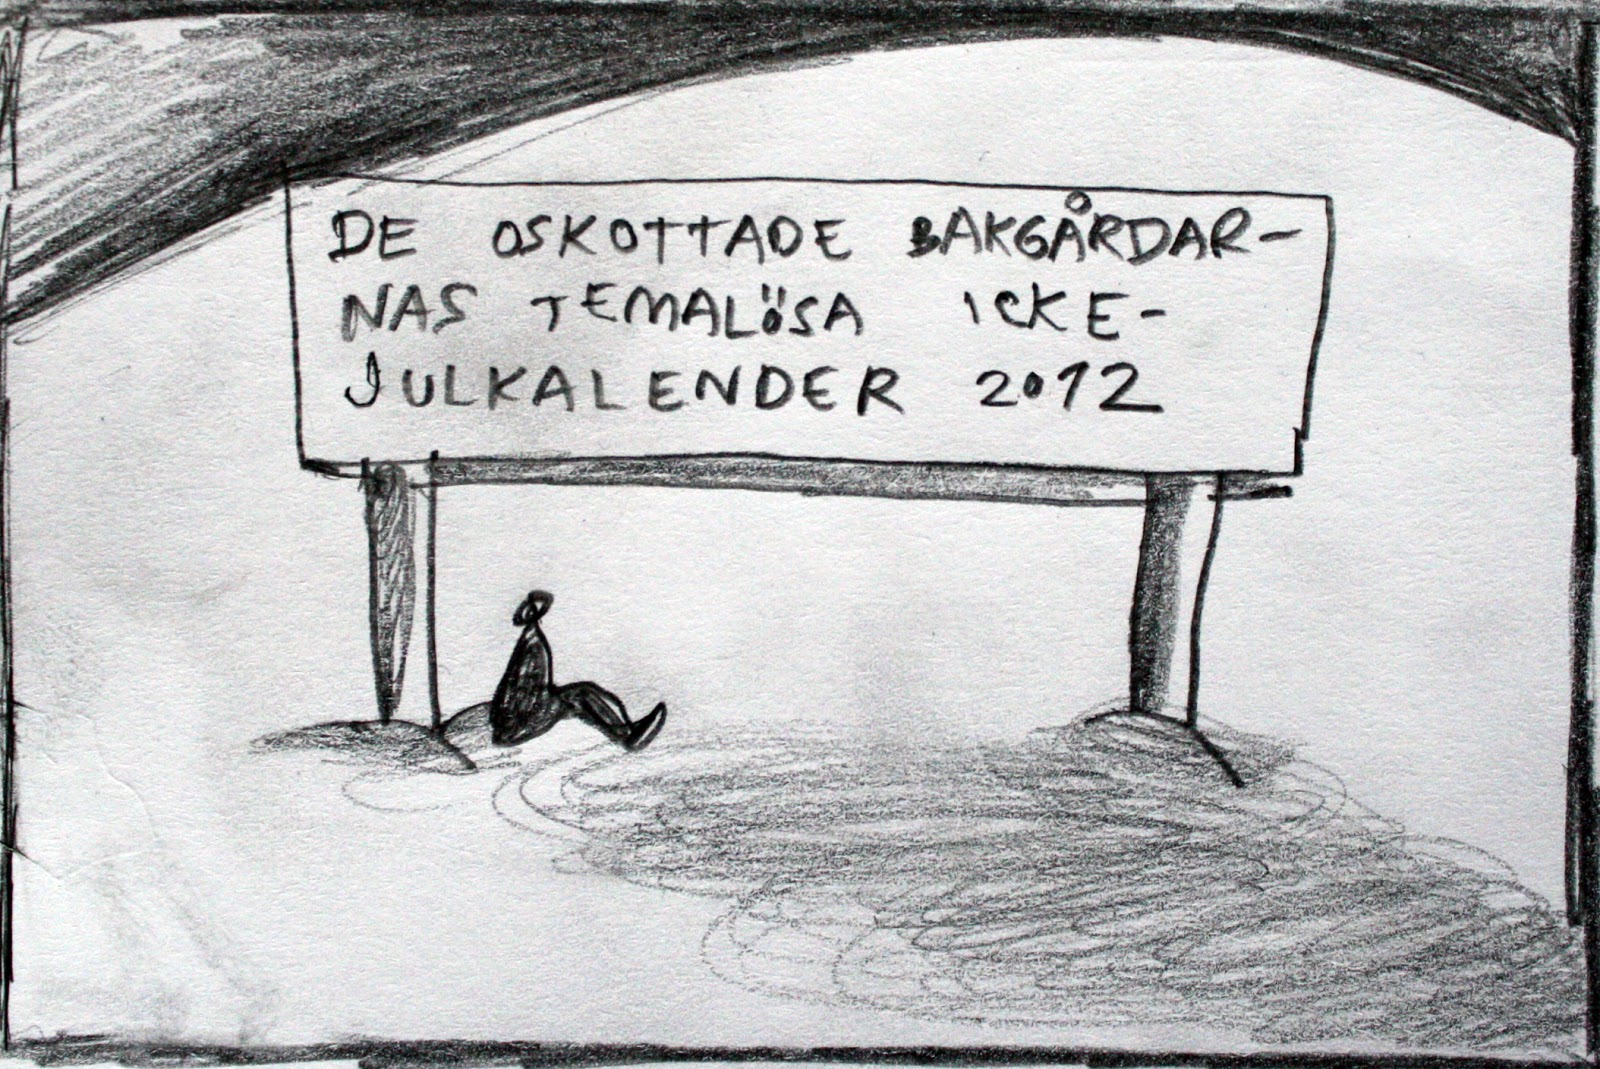 DE OSKOTTADE BAKGÅRDAR-
NAS TEMALÖSA ICKE-
JULKALENDER 2012